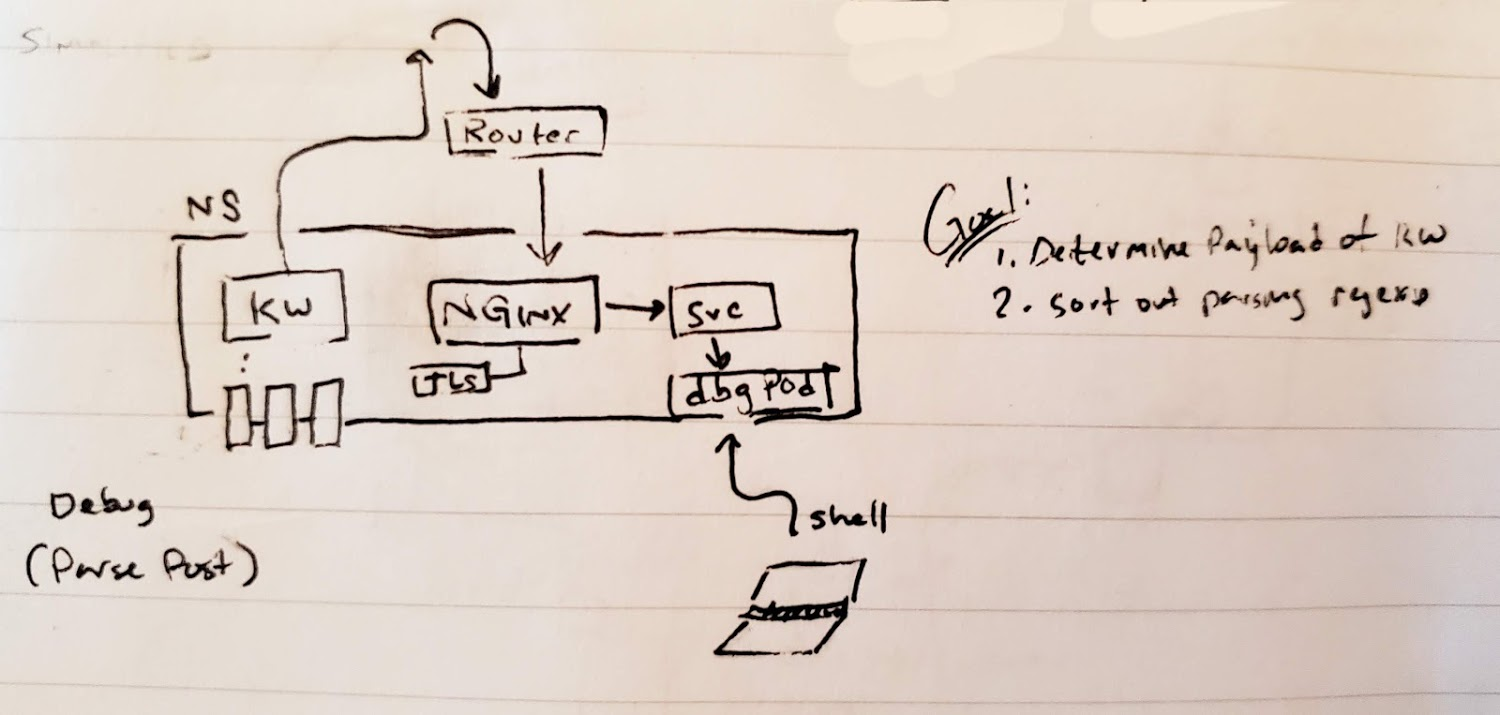 Router
NS
KW
NGINX
Svc
TLS
dbg Pod
Goal:
1. Determine Payload of KW
2. sort out parsing regexs
Debug
(Parse Post)
shell